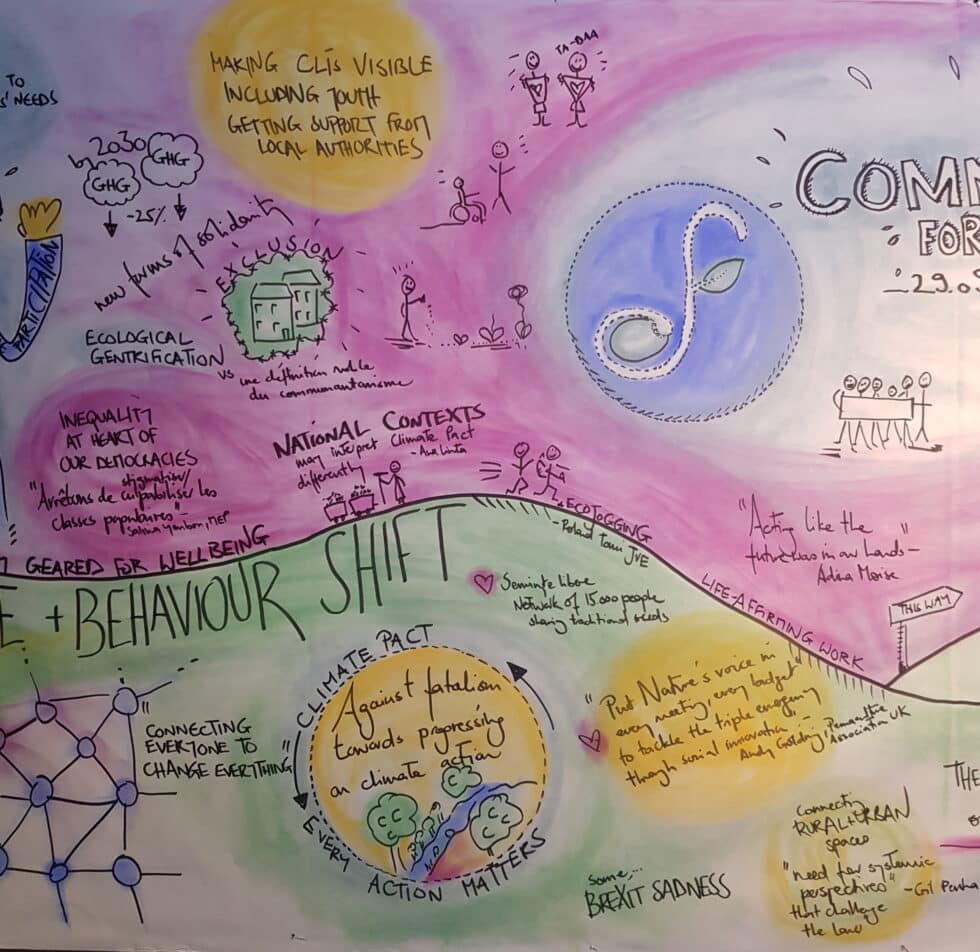 TO
S' NEEDS
MAKING CLIs VISIBLE
INCLUDING YOUTH
GETTING SUPPORT FROM
LOCAL AUTHORITIES
TA-DAA
by 2030
GHG
GHG
-25%
PARTICIPATION
new forms of solidarity
EXCLUSION
ECOLOGICAL
GENTRIFICATION
vs une définition noble
du communautarisme
COMM
FOR
29.0
INEQUALITY
AT HEART OF
OUR DEMOCRACIES
stigmatiser/
"Arrêtons de culpabiliser les
classes populaires"
- Salima Yenbou, MEP
NATIONAL CONTEXTS
may interpret Climate Pact
differently - Ana
GEARED FOR WELLBEING
ECOJOGGING
- Poland Team JVE
"Acting like the
future was in our hands" -
Adina
LIFE-AFFIRMING WORK
THIS WAY
E + BEHAVIOUR SHIFT
Seminte libere
Network of 15.000 people
sharing traditional seeds
"CONNECTING
EVERYONE TO
CHANGE EVERYTHING"
CLIMATE PACT
Against fatalism
towards progressing
on climate action
EVERY ACTION MATTERS
"Put Nature's voice in
every meeting, every budget"
to tackle the triple emergency
through social innovation -
Andy Goldring, Permaculture
Association UK
THE
Connecting
RURAL + URBAN
spaces
"need for systemic
perspectives" - Gil Penha
that challenge
the law
some...
BREXIT SADNESS